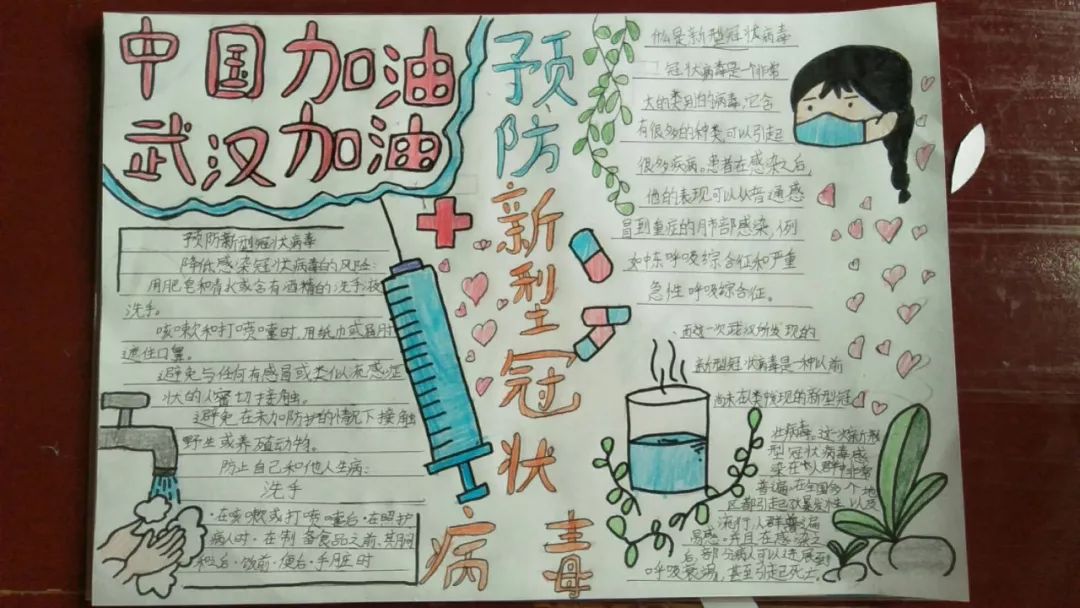 中国加油
武汉加油
预防新型冠状病毒
预防新型冠状病毒
降低感染冠状病毒的风险：
用肥皂和清水或含有酒精的洗手液
洗手。
咳嗽和打喷嚏时，用纸巾或屈肘
遮住口鼻。
避免与任何有感冒或类似流感症
状的人密切接触。
避免在未加防护的情况下接触
野生或养殖动物。
防止自己和他人生病：
洗手
·在咳嗽或打喷嚏后·在照护
病人时·在制备食品之前，其间
和之后·饭前·便后·手脏时
什么是新型冠状病毒
冠状病毒是一个非常
大的类别的病毒，它含
有很多的种类，可以引起
很多疾病。患者在感染之后，
他的表现可以从普通感
冒到重症的肺部感染，例
如中东呼吸综合征和严重
急性呼吸综合征。
而这一次武汉所发现的
新型冠状病毒是一种以前
尚未在人类发现的新型冠
状病毒，这次新
型冠状病毒感
染在人群中非常
普遍，在全国多个地
区都引起以及
流行，人群普遍
易感，并且在感染之
后，部分病人可以进展到
呼吸衰竭，甚至引起死亡。